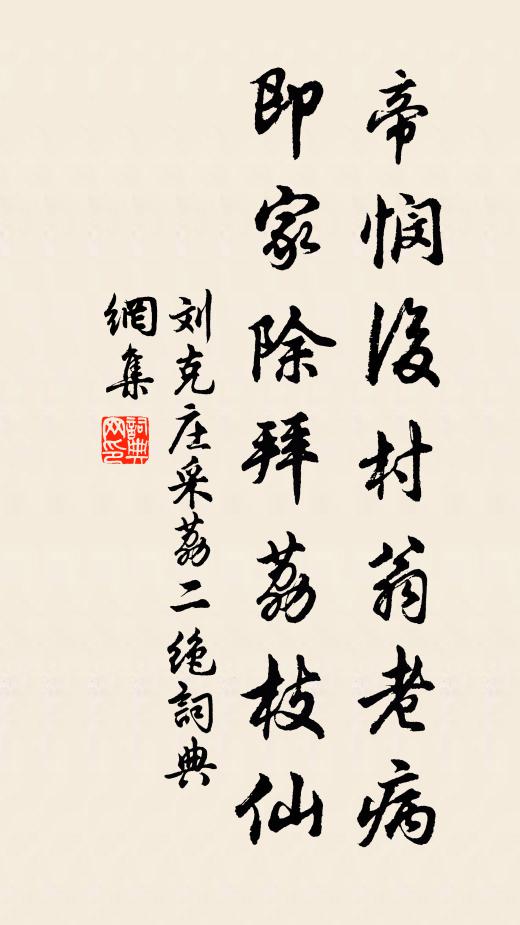 帝悯后村翁老病
即家除拜荔枝仙
刘克庄采荔二绝詞典
網集
詞典
网印